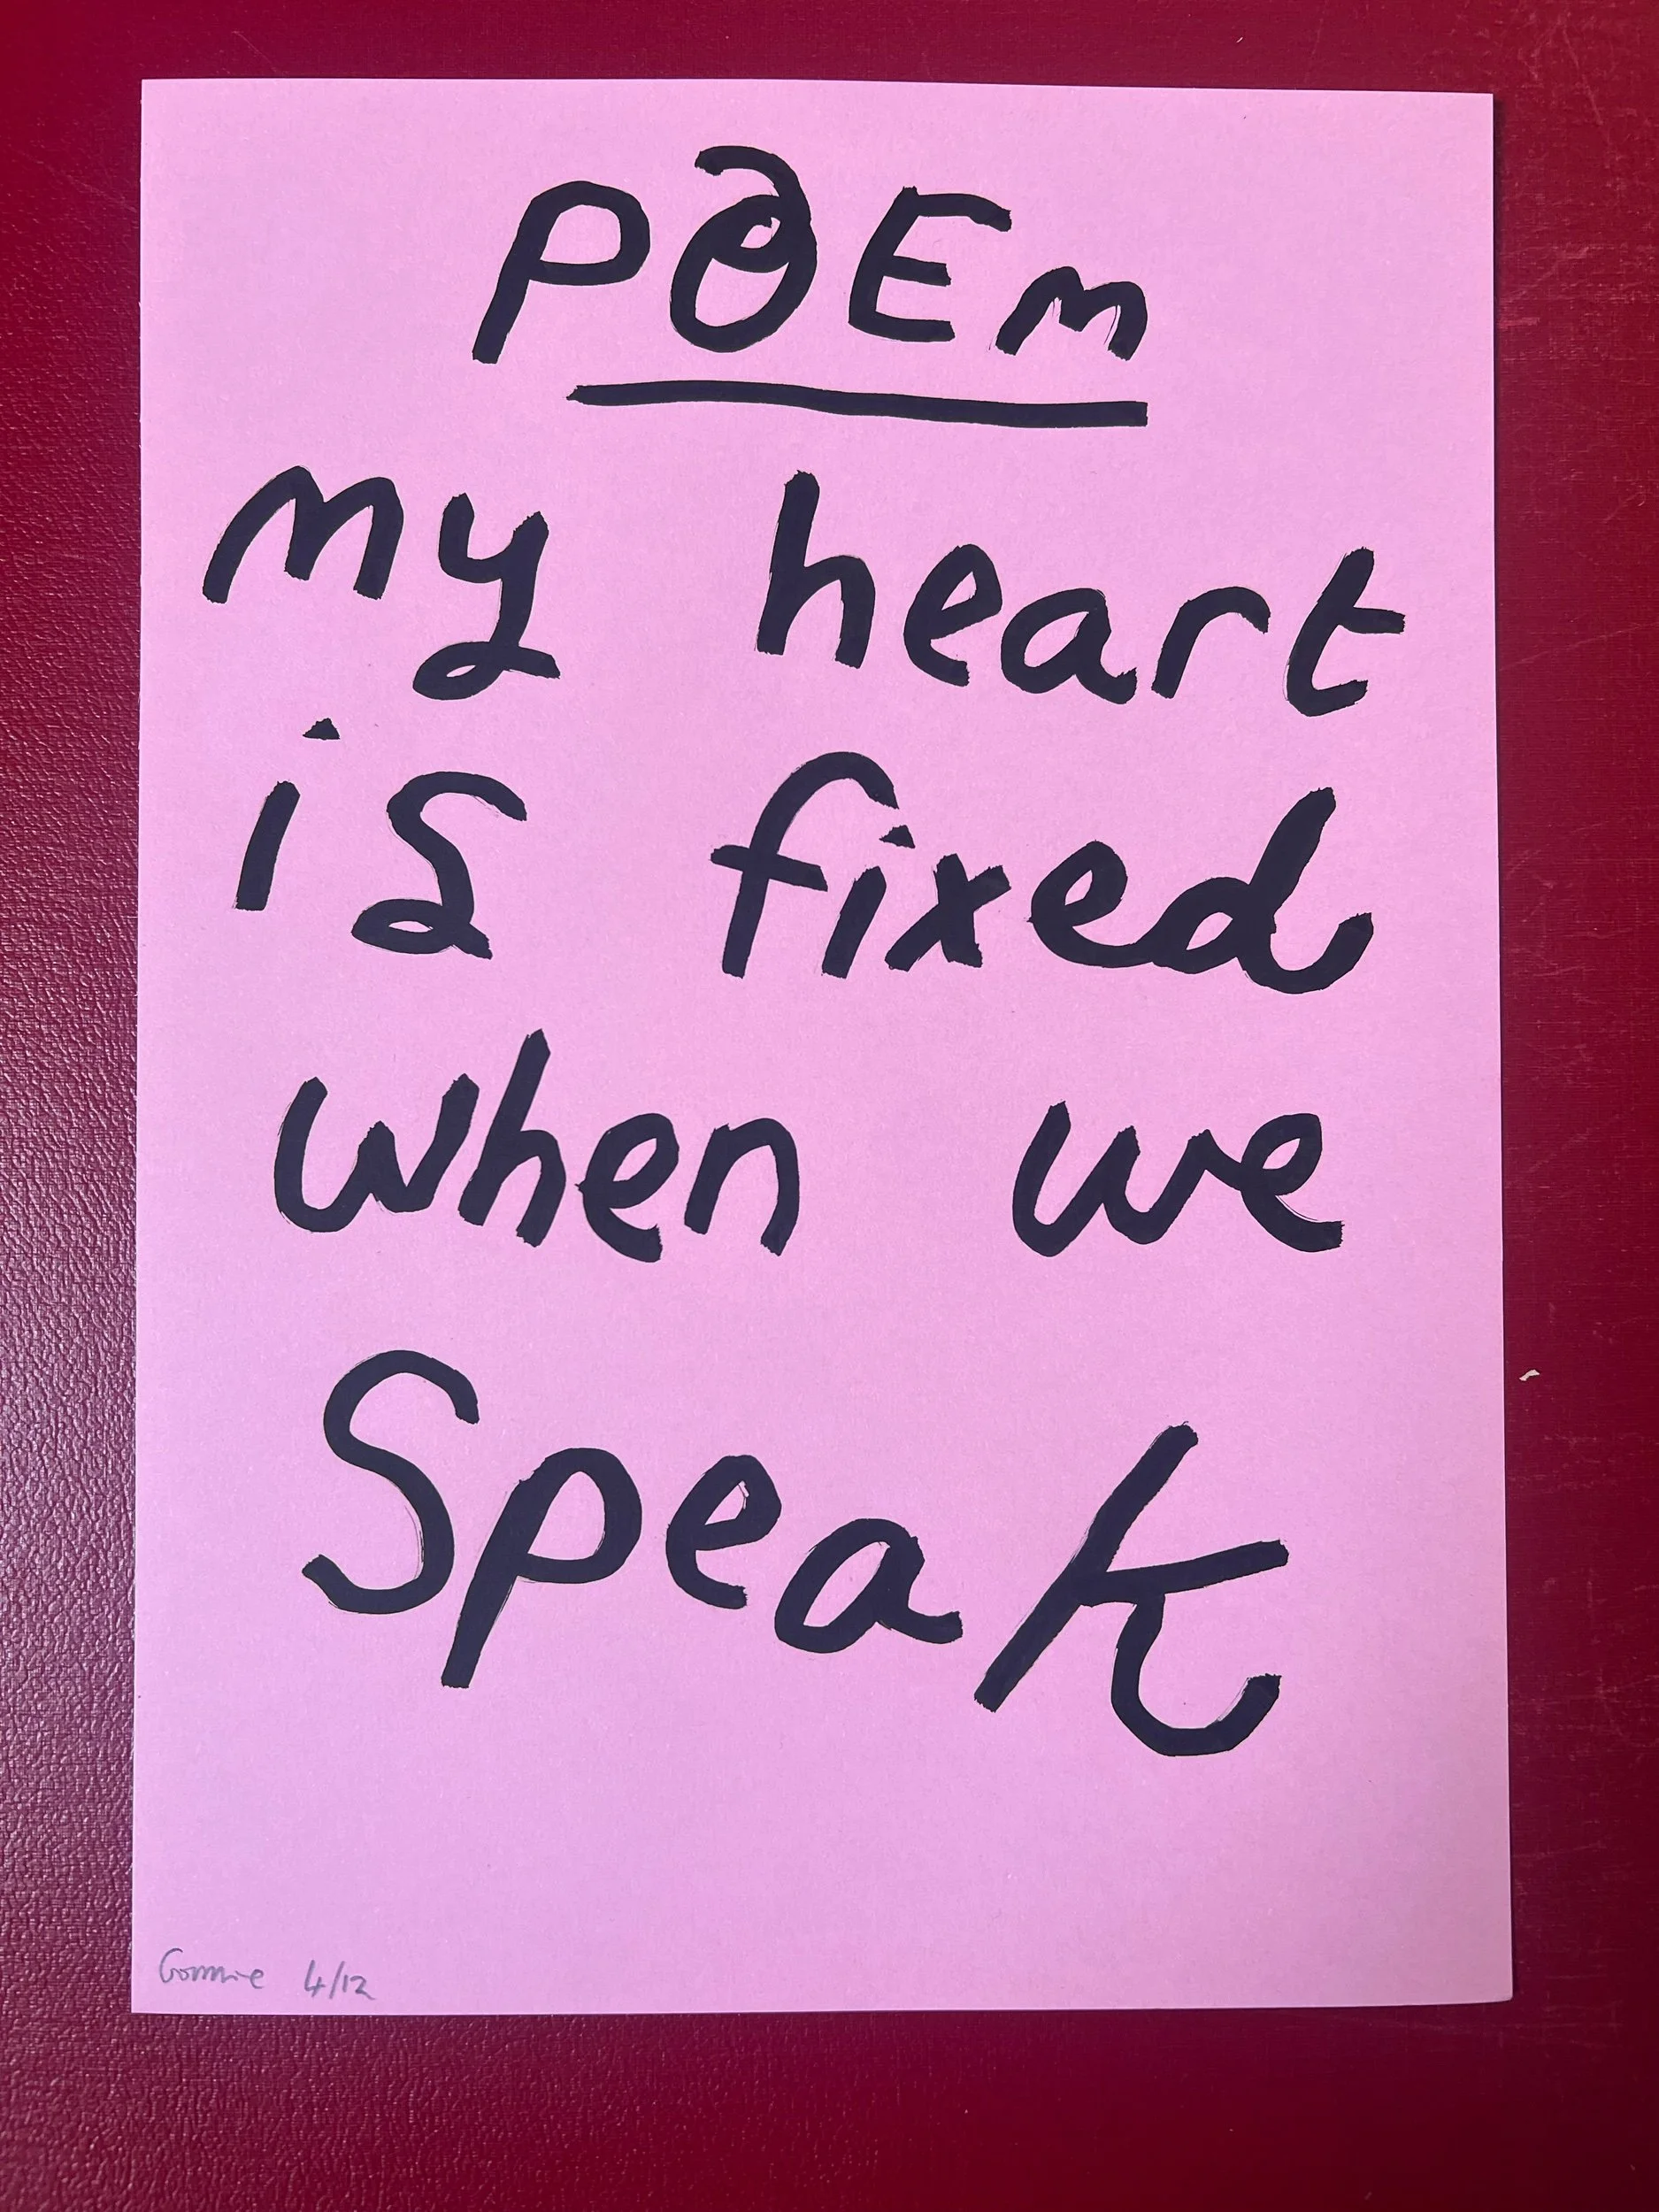 POEM
my heart
is fixed
when we
Speak
Gommie 4/12